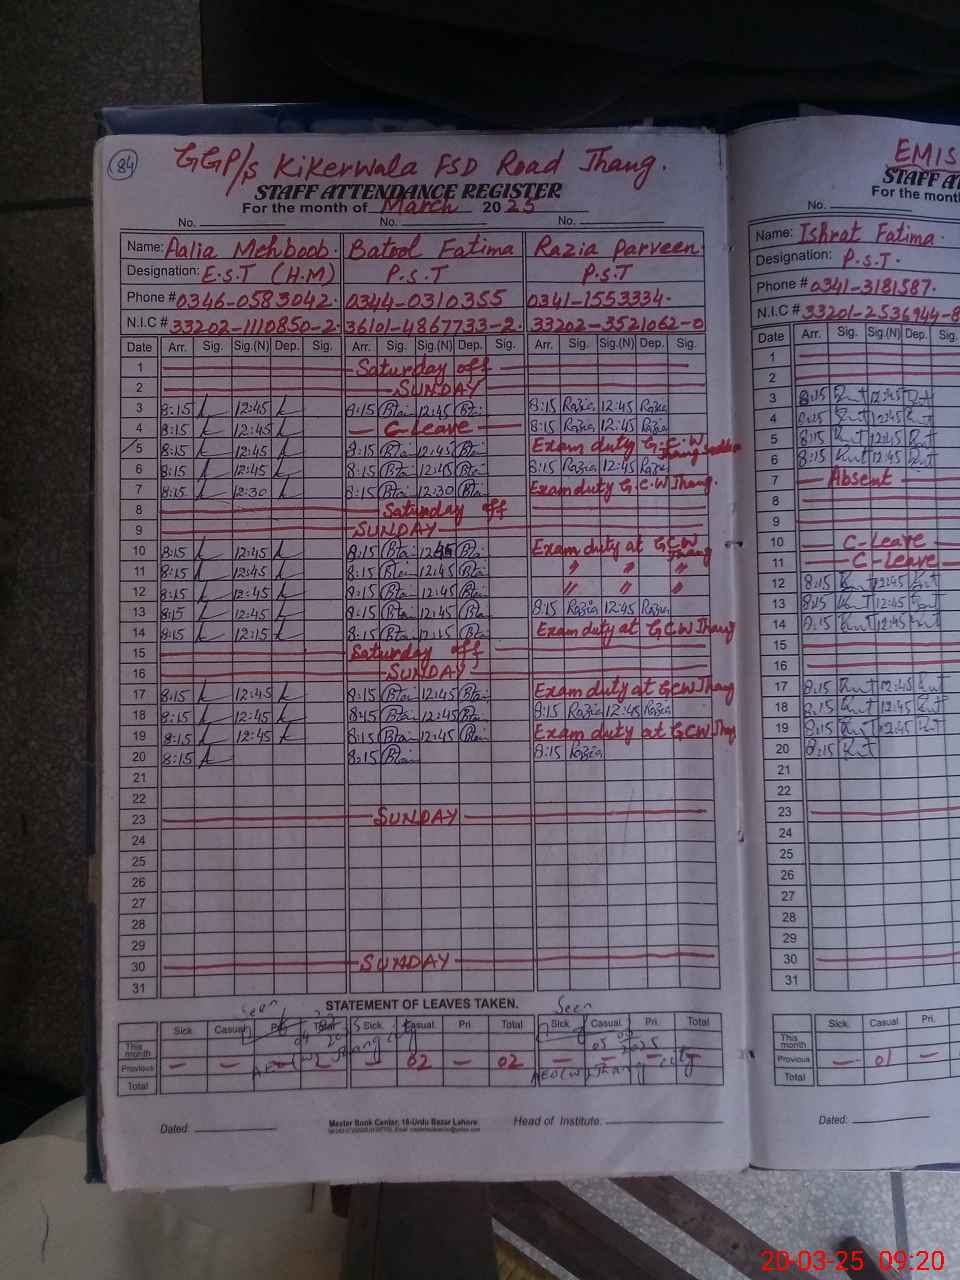 84
GGP/s Kikerwala FSD Road Jhang.
STAFF ATTENDANCE REGISTER
For the month of March 2025
No. No. No.
Name: Aalia Mehboob. Batool Fatima Razia Parveen.
Designation: E.S.T (H.M) P.S.T P.S.T
Phone # 0346-0583042. 0344-0310355 0341-1553334.
N.I.C # 33202-1110850-2. 36101-4867733-2. 33202-3521062-0
Date Arr. Sig. Sig.(N) Dep. Sig. Arr. Sig. Sig.(N) Dep. Sig. Arr. Sig. Sig.(N) Dep. Sig.
1 Saturday off
2 SUNDAY
3 8:15 12:45 8:15 12:45 8:15 Razia 12:45 Razia
4 8:15 12:45 C-Leave 8:15 Razia 12:45 Razia
5 8:15 12:45 8:15 12:45 Exam duty G.C.W Jhang Saddar
6 8:15 12:45 8:15 12:45 8:15 Razia 12:45 Razia
7 8:15 12:30 8:15 12:30 Exam duty G.C.W Jhang.
8 Saturday off
9 SUNDAY
10 8:15 12:45 8:15 12:45 Exam duty at GCW Jhang
11 8:15 12:45 8:15 12:45 " " "
12 8:15 12:45 8:15 12:45 " " "
13 8:15 12:45 8:15 12:45 8:15 Razia 12:45 Razia
14 8:15 12:15 8:15 12:15 Exam duty at GCW Jhang
15 Saturday off
16 SUNDAY
17 8:15 12:45 8:15 12:45 Exam duty at GCW Jhang
18 8:15 12:45 8:15 12:45 8:15 Razia 12:45 Razia
19 8:15 12:45 8:15 12:45 Exam duty at GCW Jhang
20 8:15 8:15 8:15 Razia
21
22
23 SUNDAY
24
25
26
27
28
29
30 SUNDAY
31
STATEMENT OF LEAVES TAKEN.
Seen Seen
Sick. Casual. Pri. Total Sick. Casual. Pri. Total Sick. Casual. Pri. Total
This month
Previous — — — — — 02 — 02 — — — —
Total
AEO(W) Jhang City
AEO(W) Jhang City
Dated: Master Book Center, 16-Urdu Bazar Lahore Head of Institute.
EMIS
STAFF AT
For the month
No.
Name: Ishrat Fatima.
Designation: P.S.T.
Phone # 0341-3181587.
N.I.C # 33201-2536944-8
Date Arr. Sig. Sig.(N) Dep. Sig.
1
2
3 8:15 12:45
4 8:15 12:45
5 8:15 12:45
6 8:15 12:45
7 Absent
8
9
10 C-Leave
11 C-Leave
12 8:15 12:45
13 8:15 12:45
14 8:15 12:45
15
16
17 8:15 12:45
18 8:15 12:45
19 8:15 12:45
20 8:15
21
22
23
24
25
26
27
28
29
30
31
Sick. Casual Pri.
This month
Previous — 01 —
Total
Dated:
20-03-25 09:20